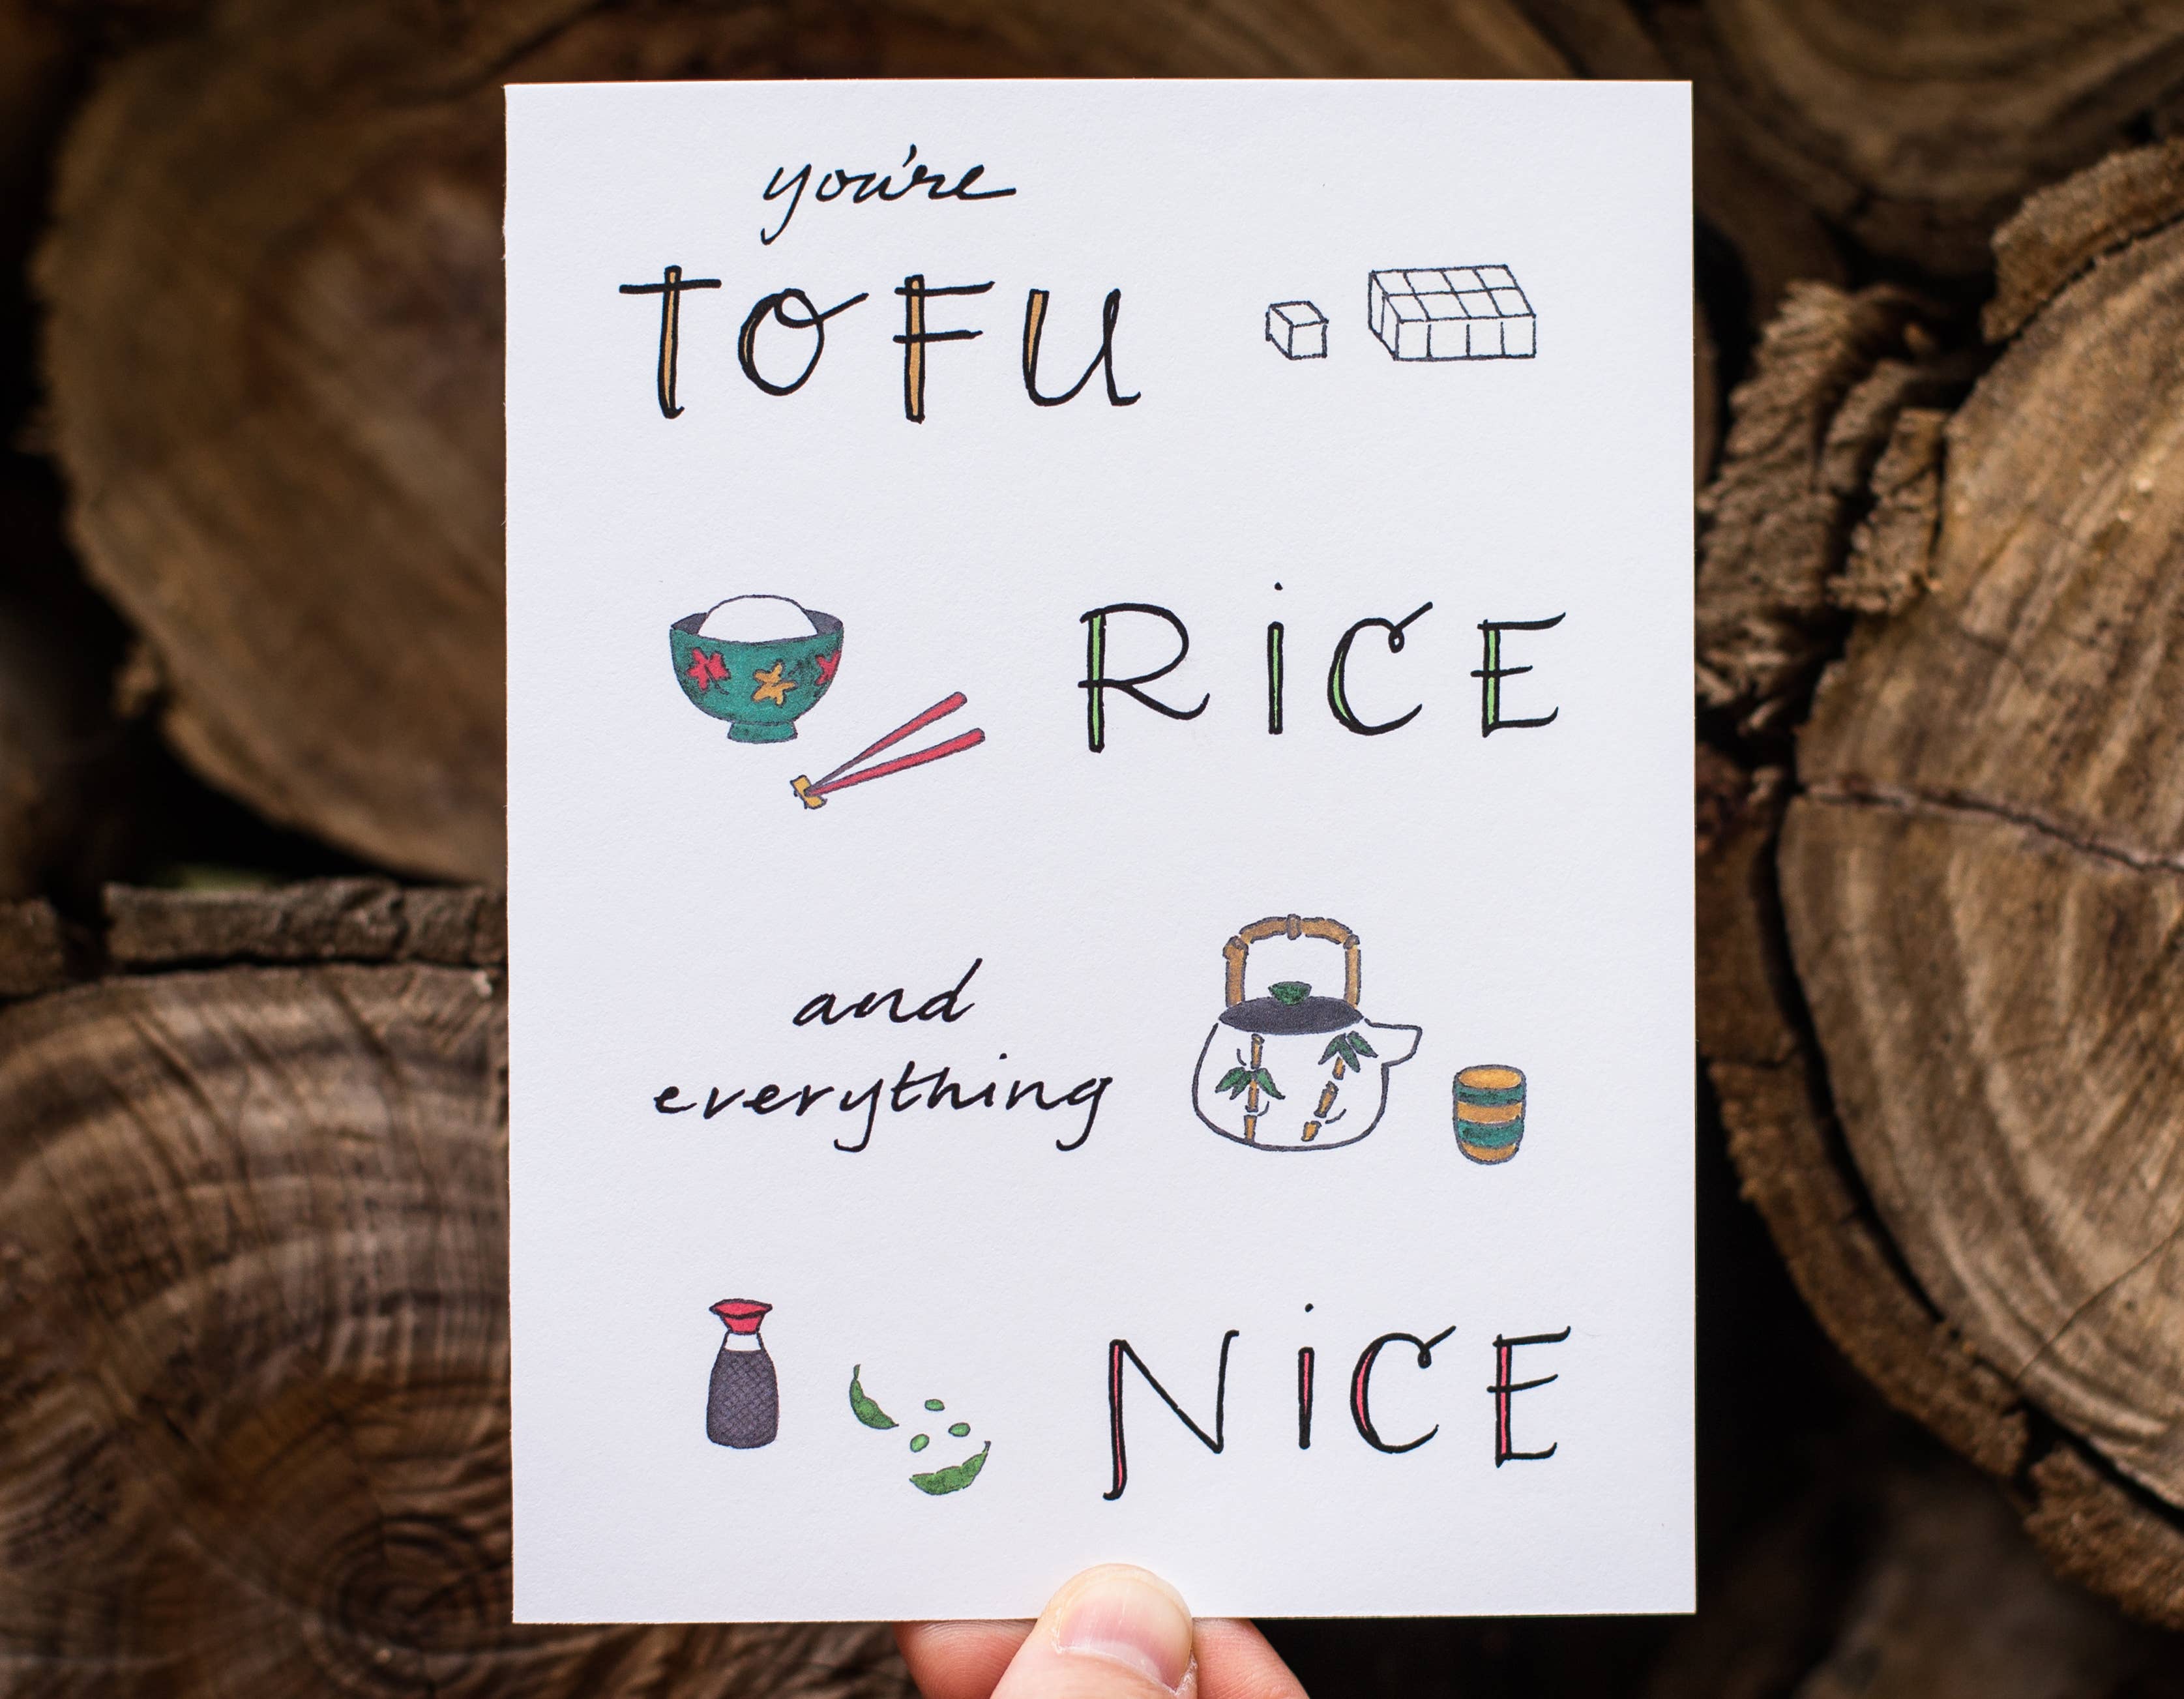 you're
TOFU
RiCE
and
everything
NiCE